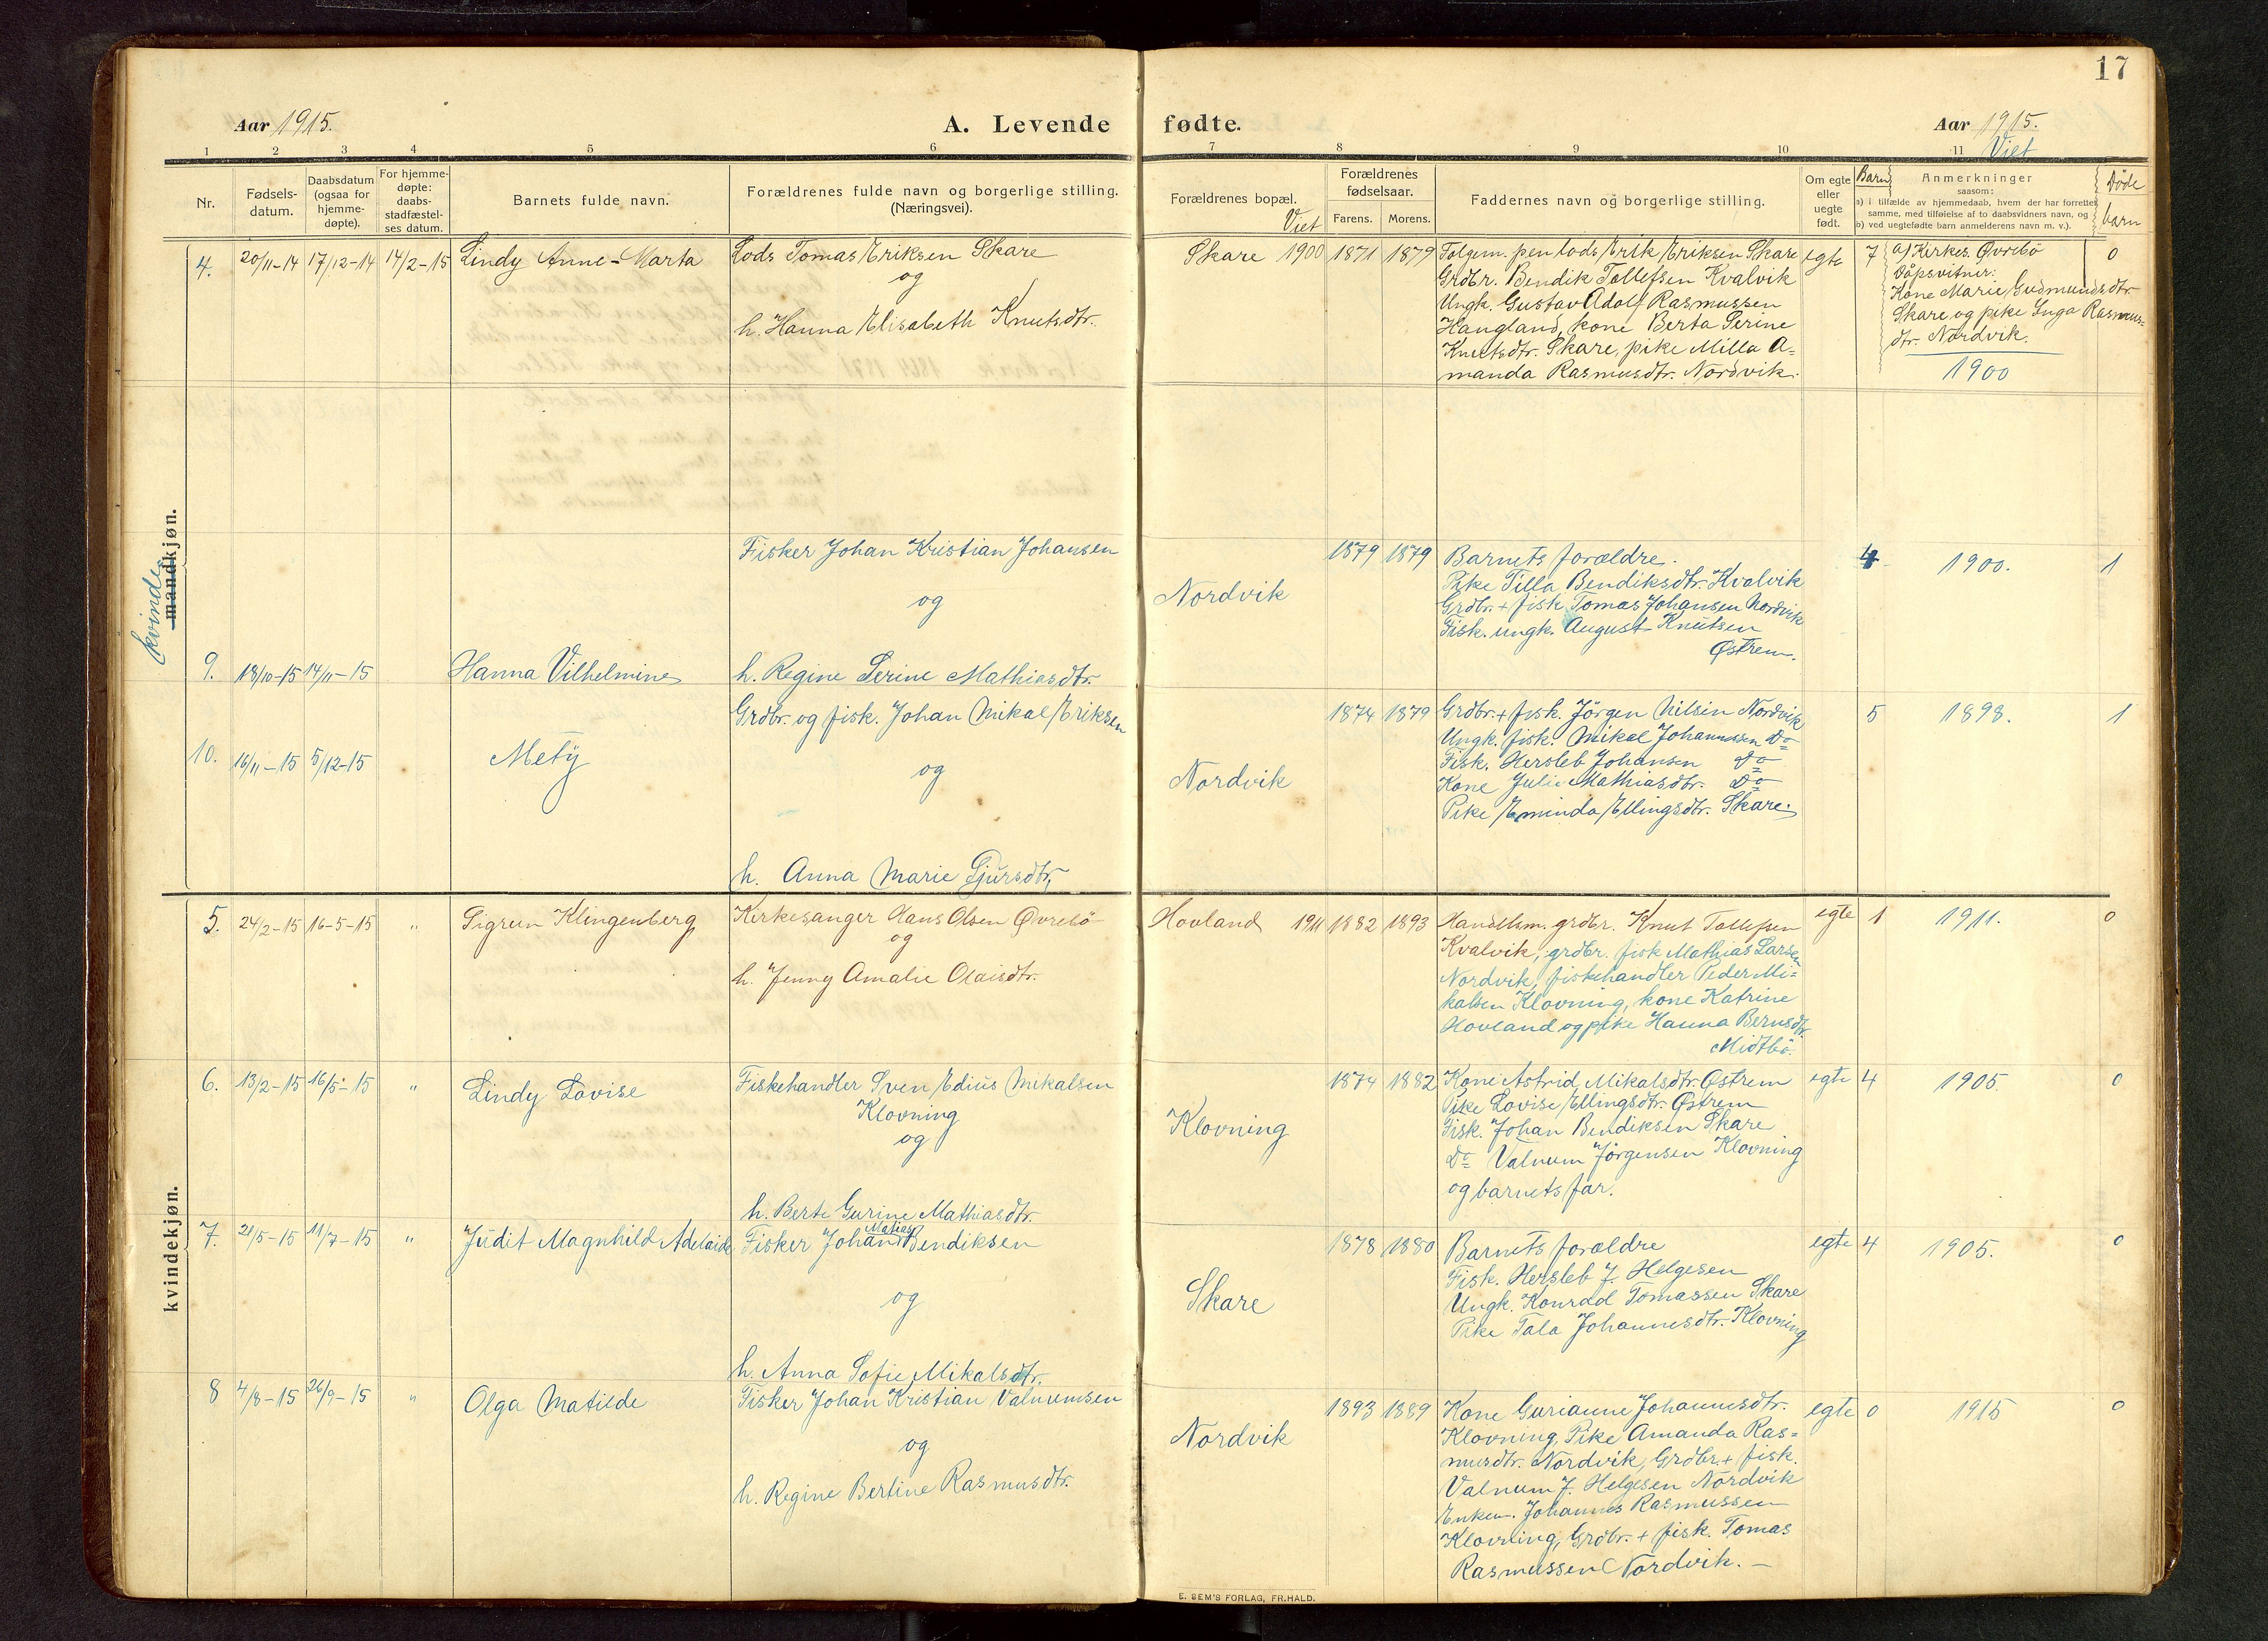 17
Aar 1915.
A. Levende
fødte.
Aar 1915.
1 2 3 4 5 6 7 8 9 10 11
Viet
Nr.
Fødsels-
datum.
Daabsdatum
(ogsaa for
hjemme-
døpte).
For hjemme-
døpte:
daabs-
stadfæstel-
ses datum.
Barnets fulde navn.
Forældrenes fulde navn og borgerlige stilling.
(Næringsvei).
Forældrenes bopæl.
Viet
Forældrenes
fødselsaar.
Farens. Morens.
Faddernes navn og borgerlige stilling.
Om egte
eller
uegte
født.
Barn
Anmerkninger
saasom:
a) i tilfælde av hjemmedaab, hvem der har forrettet
samme, med tilføielse af to daabsvidners navn, og
b) ved uegtefødte barn anmelderens navn m. v.).
Døde
barn
mandkjøn.
kvinde
4. 20/11-14 17/12-14 14/2-15 Lindy Anne-Marta
Lods Tomas Eriksen Skare
og
h. Hanna Elisabeth Knutsdtr.
Skare 1900 1871 1879
Folgem. pen lods Erik Eriksen Skare
Grdbr. Bendik Tollefsen Kvalvik
Ungk. Gustav Adolf Rasmussen
Haugland, kone Berta Serine
Knutsdtr. Skare, pike Milla A=
manda Rasmusdtr. Nordvik.
egte 7
a) Kirkes. Øvrebö
Dåpsvitner:
Kone Marie Gudmundsdtr
Skare og pike Inga Rasmus=
dtr. Nordvik.
1900
0
9. 18/10-15 14/11-15 Hanna Vilhelmine
Fisker Johan Kristian Johansen
og
h. Regine Serine Mathiasdtr.
Nordvik 1879 1879
Barnets forældre.
Pike Tilla Bendiksdtr. Kvalvik
Grdbr. + fisk Tomas Johansen Nordvik
Fisk. ungk. August Knutsen
Østrem.
4 1900. 1
10. 16/11-15 5/12-15 Mety
Grdbr. og fisk. Johan Mikal Eriksen
og
h. Anna Marie Sjursdtr.
Nordvik 1874 1879
Grdbr. + fisk. Jörgen Nilsen Nordvik
Ungk. fisk. Mikal Johannssen Do
Fisk. Hersleb Johansen Do
Kone Julie Mathiasdtr. Do
Pike Eminda Ellingsdtr. Skare.
5 1898. 1
kvindekjøn.
5. 24/2-15 16-5-15 " Sigrun Klingenberg
Kirkesanger Hans Olsen Øvrebö
og
h. Jenny Amalie Olaisdtr.
Hovland 1911 1882 1893
Handelsm. grdbr. Knut Tollefsen
Kvalvik, grdbr. fisk Mathias Larsen
Nordvik, fiskehandler Peder Mi=
kalsen Klovning, kone Katrine
Hovland og pike Hanna Berusdtr.
Midtbö.
egte 1 1911. 0
6. 13/2-15 16/5-15 " Lindy Lovise
Fiskehandler Sven Edius Mikalsen
Klovning
og
h. Berte Gurine Mathiasdtr.
Klovning 1874 1882
Kone Astrid Mikalsdtr. Østrem
Pike Lovise Ellingsdtr. Østrem
Fisk. Johan Bendiksen Skare
Do Valnum Jörgensen Klovning
og barnets far.
egte 4 1905. 0
7. 21/5-15 11/7-15 " Judit Magnhild Adelaide
Matias
Fisker Johan Bendiksen
og
h. Anna Sofie Mikalsdtr.
Skare 1878 1880
Barnets forældre
Fisk. Hersleb J. Helgesen
Ungk. Konrad Tomassen Skare
Pike Tala Johannesdtr. Klovning
egte 4 1905. 0
8 4/8-15 26/9-15 " Olga Matilde
Fisker Johan Kristian Valnumsen
og
h. Regine Bertine Rasmusdtr.
Nordvik 1893 1889
Kone Gurianne Johannesdtr.
Klovning, Pike Amanda Ras=
musdtr. Nordvik, Grdbr. + fisk.
Valnum J. Helgesen Nordvik
Enkem. Johannes Rasmussen
Klovning, Grdbr. + fisk. Tomas
Rasmussen Nordvik. —
egte 0 1915 0
E. SEM'S FORLAG, FR.HALD.